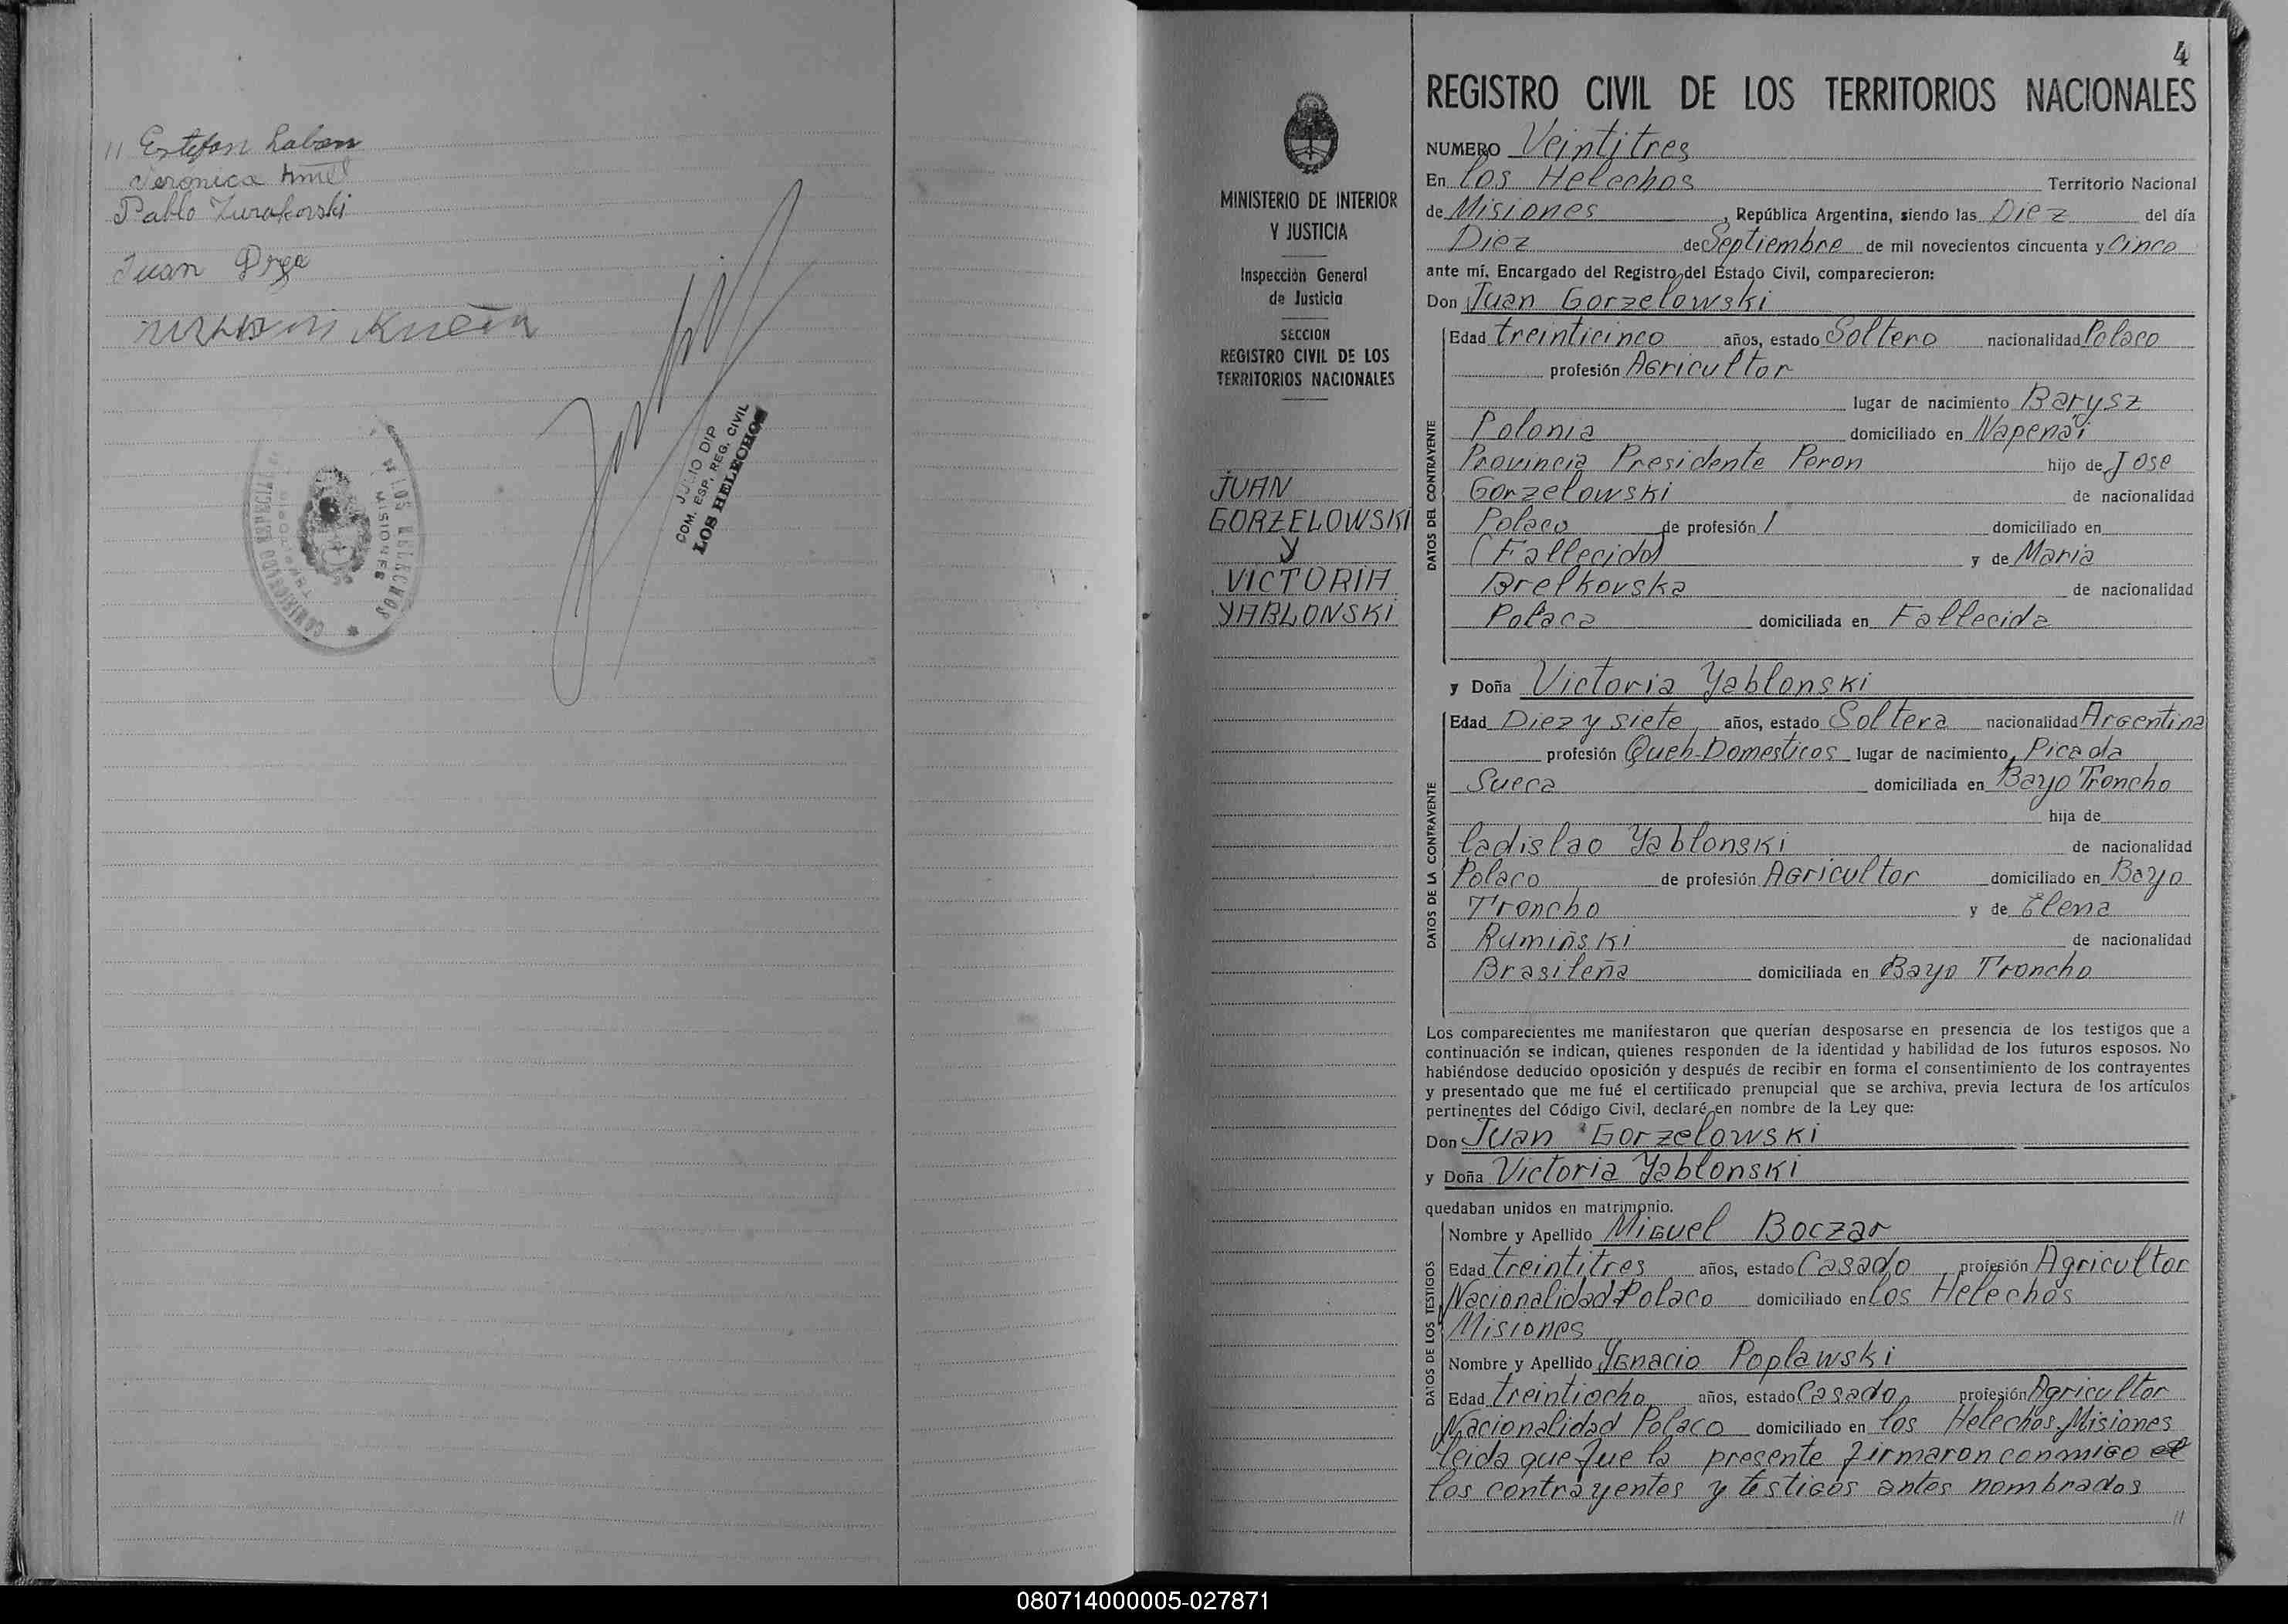 11 Estefan Laban
Veronica
Pablo Zurakovski
Juan
JULIO DIP
COM. ESP. REG. CIVIL
LOS HELECHOS
LOS HELECHOS
MISIONES
4
MINISTERIO DE INTERIOR
Y JUSTICIA
Inspección General
de Justicia
SECCION
REGISTRO CIVIL DE LOS
TERRITORIOS NACIONALES
JUAN
GORZELOWSKI
y
VICTORIA
YABLONSKI
REGISTRO CIVIL DE LOS TERRITORIOS NACIONALES
NUMERO Veintitres
En los Helechos Territorio Nacional
de Misiones, República Argentina, siendo las Diez del día
Diez de Septiembre de mil novecientos cincuenta y Cinco
ante mí, Encargado del Registro del Estado Civil, comparecieron:
Don Juan Gorzelowski
DATOS DEL CONTRAYENTE
Edad treinticinco años, estado Soltero nacionalidad Polaco
profesión Agricultor
lugar de nacimiento Barysz
Polonia domiciliado en Napenai
Provincia Presidente Peron hijo de Jose
Gorzelowski de nacionalidad
Polaco de profesión / domiciliado en
(Fallecido) y de Maria
Brelkovska de nacionalidad
Polaca domiciliada en Fallecida
y Doña Victoria Yablonski
DATOS DE LA CONTRAYENTE
Edad Diez y siete, años, estado Soltera nacionalidad Argentina
profesión Queh-Domesticos lugar de nacimiento Picada
Sueca domiciliada en Bayo Troncho
hija de
ladislao Yablonski de nacionalidad
Polaco de profesión Agricultor domiciliado en Bayo
Troncho y de Elena
Rumiñski de nacionalidad
Brasileña domiciliada en Bayo Troncho
Los comparecientes me manifestaron que querían desposarse en presencia de los testigos que a
continuación se indican, quienes responden de la identidad y habilidad de los futuros esposos. No
habiéndose deducido oposición y después de recibir en forma el consentimiento de los contrayentes
y presentado que me fué el certificado prenupcial que se archiva, previa lectura de los artículos
pertinentes del Código Civil, declaré en nombre de la Ley que:
Don Juan Gorzelowski
y Doña Victoria Yablonski
quedaban unidos en matrimonio.
DATOS DE LOS TESTIGOS
Nombre y Apellido Miguel Boczar
Edad treintitres años, estado Casado profesión Agricultor
Nacionalidad Polaco domiciliado en los Helechos
Misiones
Nombre y Apellido Ygnacio Poplawski
Edad treintiocho años, estado Casado profesión Agricultor
Nacionalidad Polaco domiciliado en los Helechos Misiones
leida que fue la presente firmaron conmigo
los contrayentes y testigos antes nombrados
11
080714000005-027871